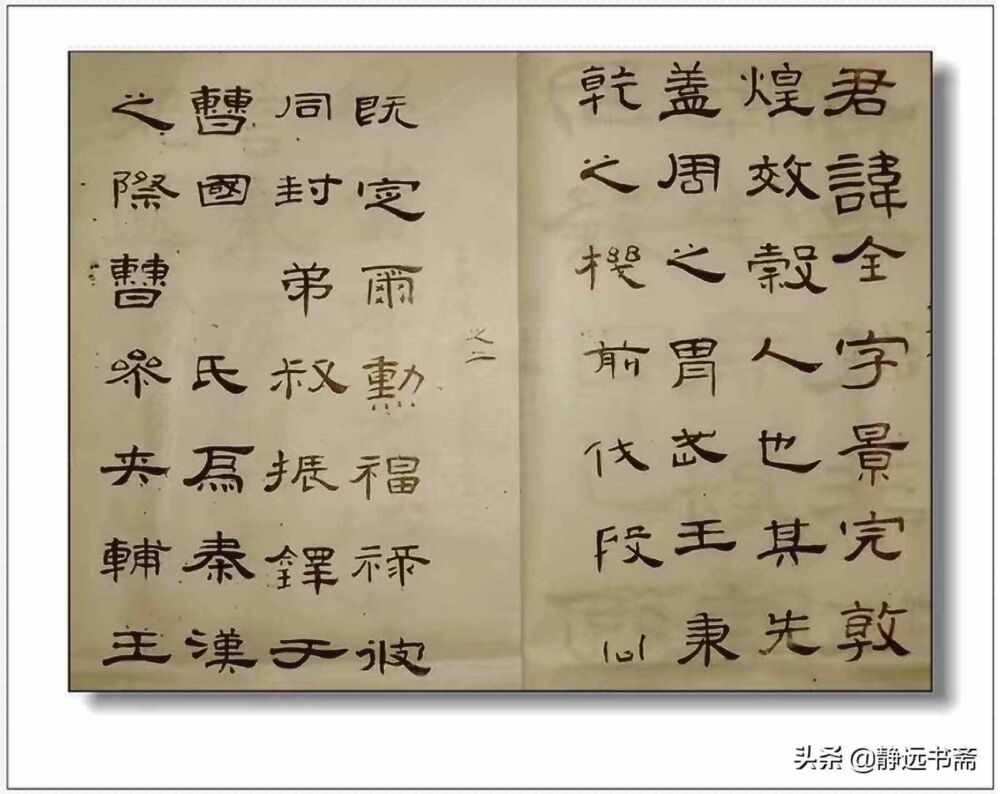 君諱全字景完敦
煌效穀人也其先
蓋周之胄武王秉
乾之機前伐殷
之二
既定爾勳福祿攸
同封弟叔振鐸于
曹國氏焉秦漢
之際曹參夾輔王
头条 @静远书斋